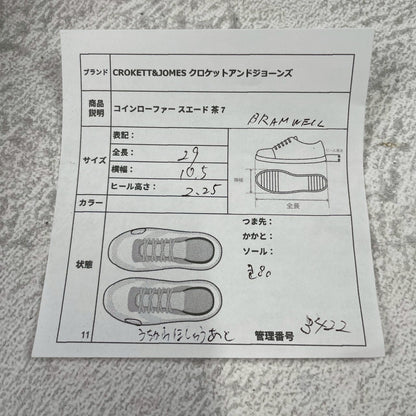 ブランド CROKETT&JOMES クロケットアンドジョーンズ
商品
説明 コインローファー スエード 茶 7 BRAMWELL
サイズ
表記：
全長： 29
横幅： 10.5
ヒール高さ： 2.25
横幅
全長
カラー
状態
つま先：
かかと：
ソール：
うちからほしゅうあと
11
管理番号 3422